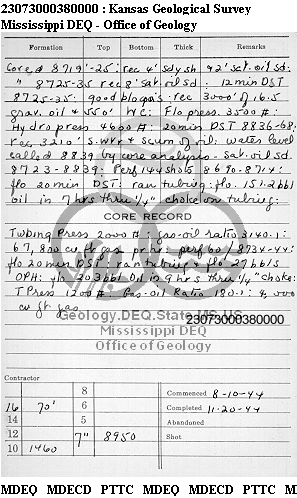 23073000380000 : Kansas Geological Survey
Mississippi DEQ - Office of Geology
Formation Top Bottom Thick Remarks
Cored 8719'-25: rec 4' sdy sh & 2' sat. oil sd:
" 8725-35 rec 8' sat oil sd: 12 min DST
8725-35: good blo gas: rec 3000' of 16.5
grav. oil & 550' WC: Flo press. 3500#:
Hydro press 4600#: 20 min DST 8836-68:
rec 3210' S. wtr & scum of oil: water level
called 8839 by core analysis - Sat. oil sd.
8723-8839: Perf 144 shots 8690-8714:
flo 20 min DST: ran tubing: flo. 151.2 bbl
oil in 7 hrs thru 1/4" choke on tubing:
CORE RECORD
Tubing Press 2000#: Gas-oil ratio 3140.1:
67,800 cu ft gas: perf 60/ 8734-44:
flo 20 min DST: ran tubing & flo 27 bbls
OPH: flo 203 bbl oil in 9 hrs thru 1/4" choke:
T Press 1200#: Gas-oil Ratio 180.1:
cu ft gas
Geology.DEQ.State.MS.US
23073000380000
Mississippi DEQ
Office of Geology
Contractor
8 Commenced 8-10-44
16 70' 6 Completed 11-20-44
14 5 Abandoned
12 7" 8950 Shot
10 1460
MDEQ MDECD PTTC MDEQ MDECD PTTC M